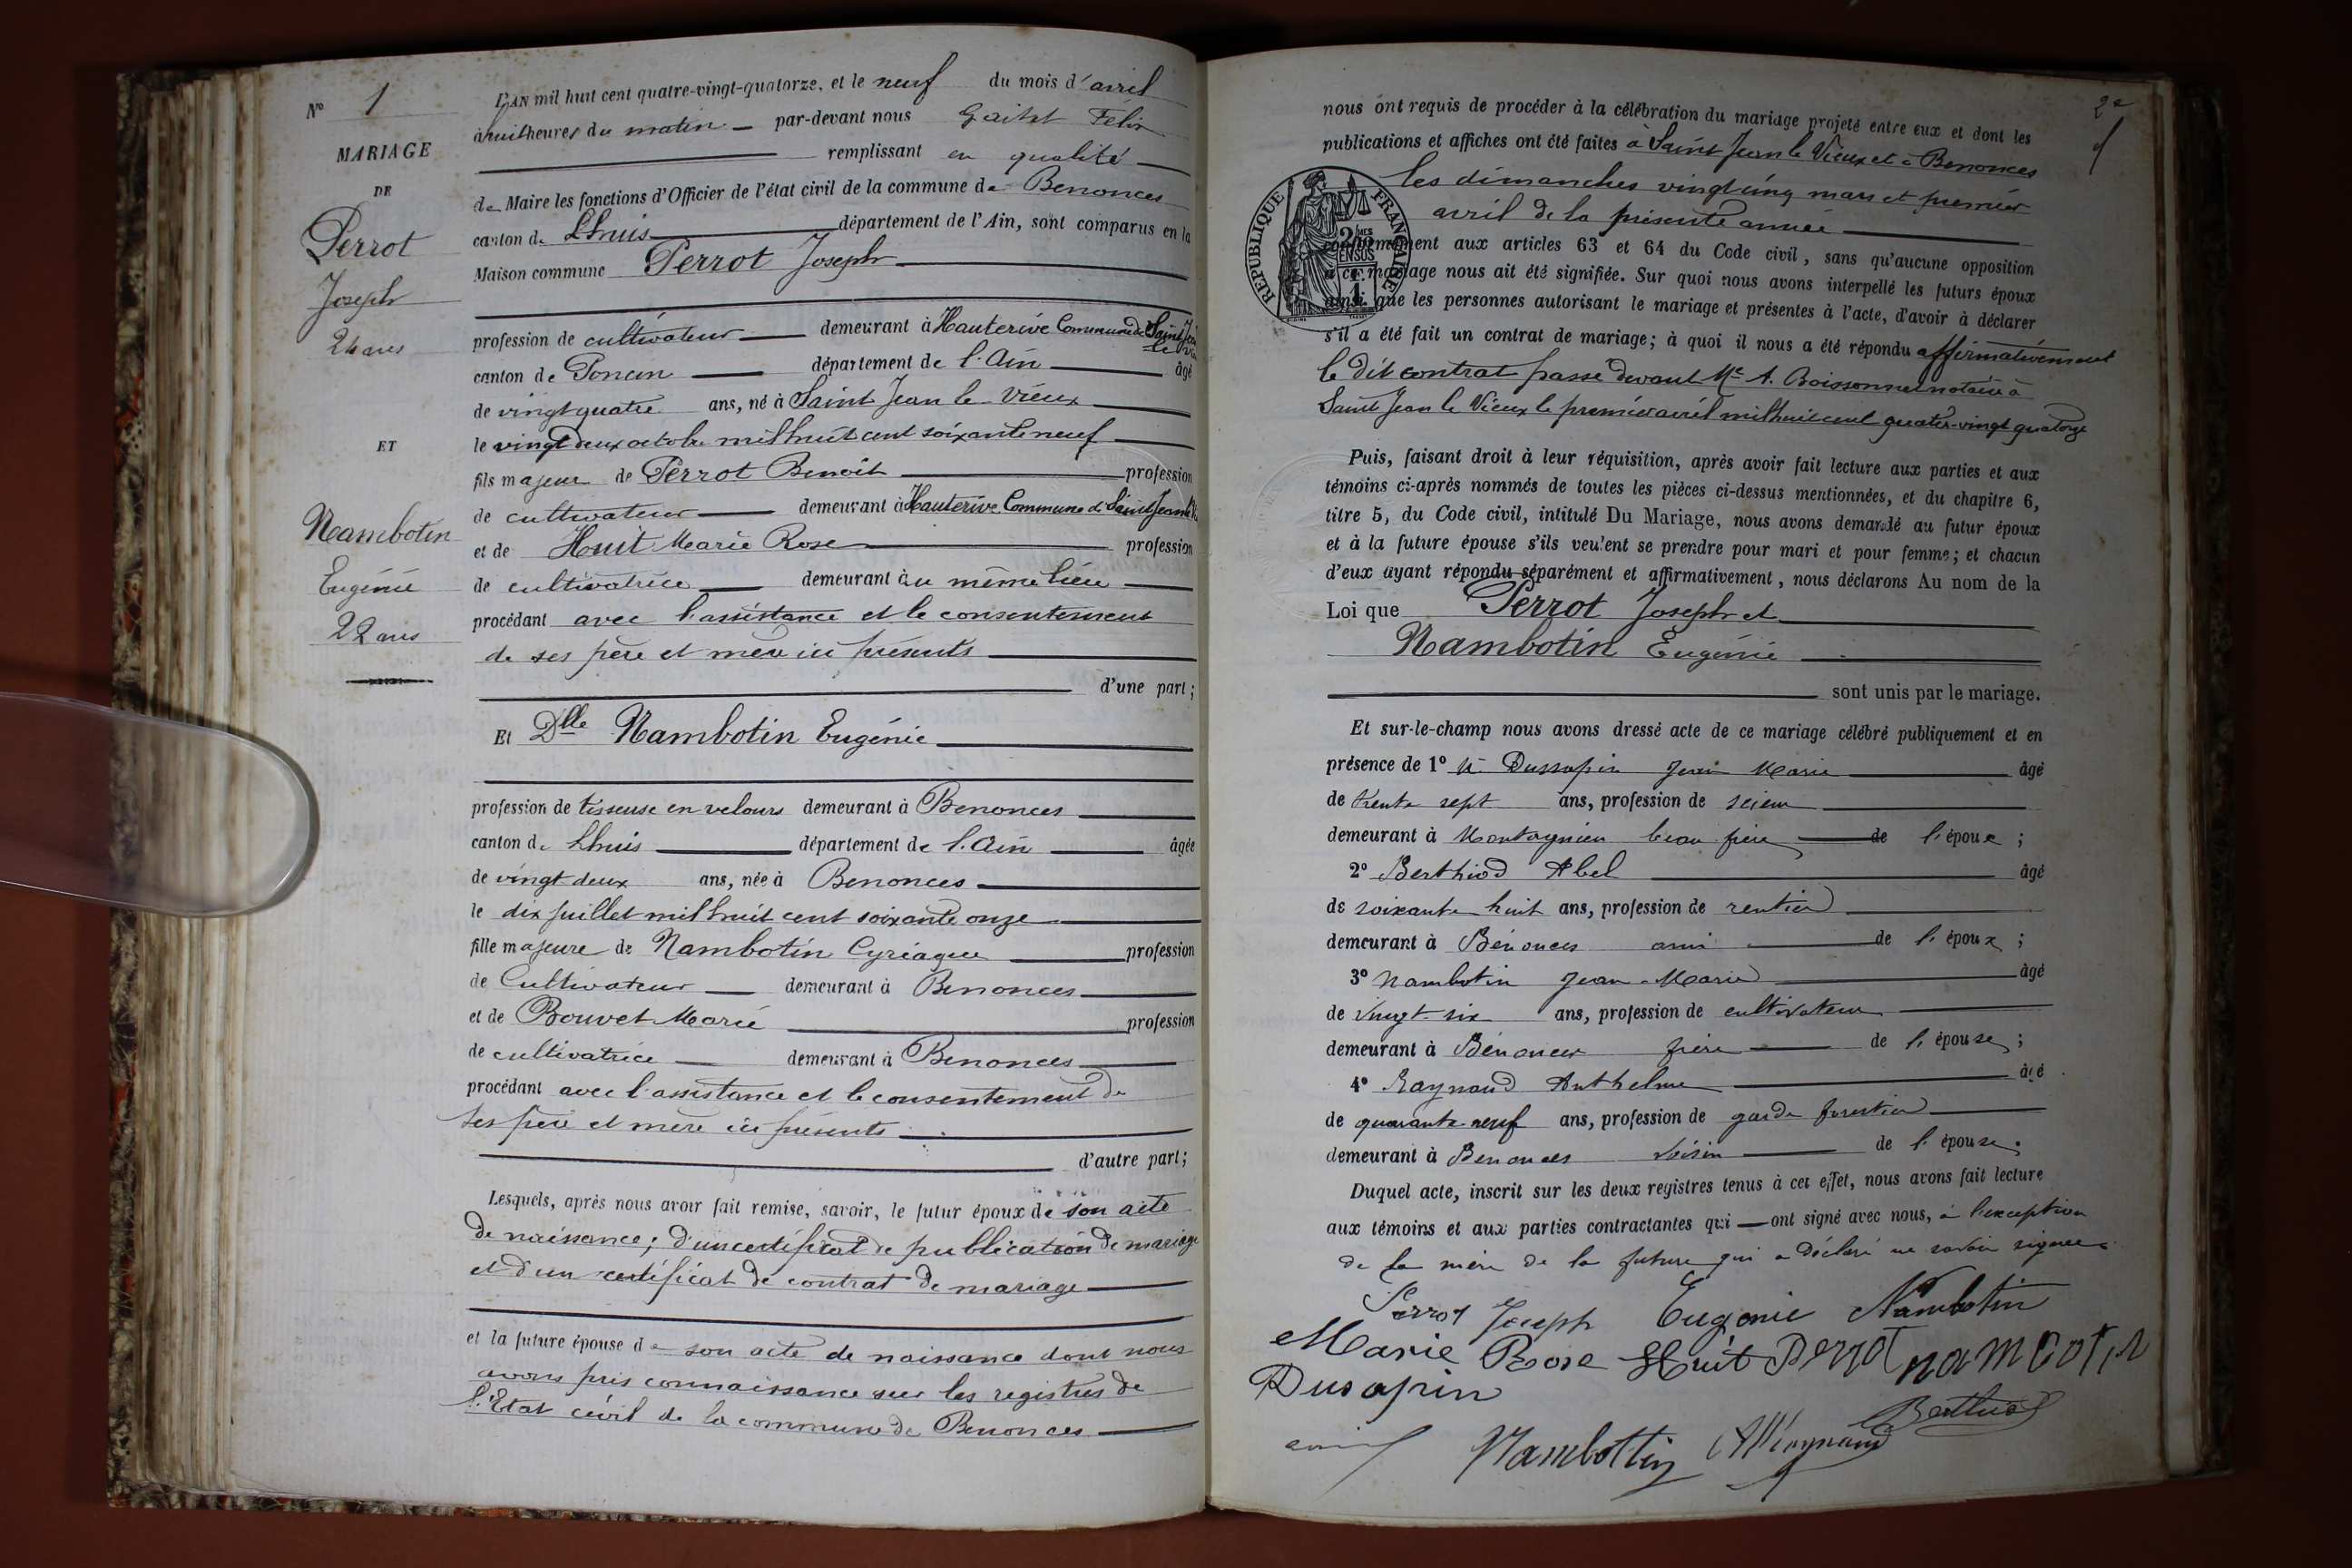 N° 1
MARIAGE
DE
Perrot
Joseph
24 ans
ET
Nambotin
Eugénie
22 ans
L'AN mil huit cent quatre-vingt-quatorze, et le neuf du mois d'avril
à huit heures du matin par-devant nous Félix
remplissant en qualité
de Maire les fonctions d'Officier de l'état civil de la commune de Benonces
canton de Lhuis département de l'Ain, sont comparus en la
Maison commune Perrot Joseph
profession de cultivateur demeurant à Hauterive Commune de Saint Jean le Vieux
canton de Poncin département de l'Ain âgé
de vingt quatre ans, né à Saint Jean le Vieux
le vingt deux octobre mil huit cent soixante neuf
fils majeur de Perrot Benoit profession
de cultivateur demeurant à Hauterive Commune de Saint Jean le V
et de Huit Marie Rose profession
de cultivatrice demeurant au même lieu
procédant avec l'assistance et le consentement
de ses père et mère ici présents
d'une part ;
Et Dlle Nambotin Eugénie
profession de tisseuse en velours demeurant à Benonces
canton de Lhuis département de l'Ain âgée
de vingt deux ans, née à Benonces
le dix juillet mil huit cent soixante onze
fille majeure de Nambotin Cyriaque profession
de Cultivateur demeurant à Benonces
et de Bouvet Marie profession
de cultivatrice demeurant à Benonces
procédant avec l'assistance et le consentement de
ses père et mère ici présents
d'autre part ;
Lesquels, après nous avoir fait remise, savoir, le futur époux de son acte
de naissance ; d'un certificat de publication de mariage
et d'un certificat de contrat de mariage
et la future épouse de son acte de naissance dont nous
avons pris connaissance sur les registres de
l'Etat civil de la commune de Benonces
2e
nous ont requis de procéder à la célébration du mariage projeté entre eux et dont les
publications et affiches ont été faites à Saint Jean le Vieux et à Benonces
les dimanches vingt cinq mars et premier
avril de la présente année
REPUBLIQUE FRANÇAISE
conformément aux articles 63 et 64 du Code civil, sans qu'aucune opposition
à ce mariage nous ait été signifiée. Sur quoi nous avons interpellé les futurs époux
ainsi que les personnes autorisant le mariage et présentes à l'acte, d'avoir à déclarer
s'il a été fait un contrat de mariage ; à quoi il nous a été répondu affirmativement
le dit contrat passé devant Me A. Boissonnet notaire à
Saint Jean le Vieux le premier avril mil huit cent quatre-vingt quatorze
Puis, faisant droit à leur réquisition, après avoir fait lecture aux parties et aux
témoins ci-après nommés de toutes les pièces ci-dessus mentionnées, et du chapitre 6,
titre 5, du Code civil, intitulé Du Mariage, nous avons demandé au futur époux
et à la future épouse s'ils veulent se prendre pour mari et pour femme ; et chacun
d'eux ayant répondu séparément et affirmativement, nous déclarons Au nom de la
Loi que Perrot Joseph et
Nambotin Eugénie
sont unis par le mariage.
Et sur-le-champ nous avons dressé acte de ce mariage célébré publiquement et en
présence de 1° Dussapin Jean Marie âgé
de trente sept ans, profession de scieur
demeurant à Montagnieu beau frère de l'époux ;
2° Berthiod Abel âgé
de soixante huit ans, profession de rentier
demeurant à Bénonces ami de l'époux ;
3° Nambotin Jean-Marie âgé
de vingt-six ans, profession de cultivateur
demeurant à Bénonces frère de l'épouse ;
4° Raynaud Anthelme âgé
de quarante-neuf ans, profession de garde forestier
demeurant à Benonces voisin de l'épouse.
Duquel acte, inscrit sur les deux registres tenus à cet effet, nous avons fait lecture
aux témoins et aux parties contractantes qui ont signé avec nous, à l'exception
de la mère de la future qui a déclaré ne savoir signer.
Perrot Joseph Eugénie Nambotin
Marie Rose Huit Perrot nambotin
Dusapin
Nambottin Berthiod